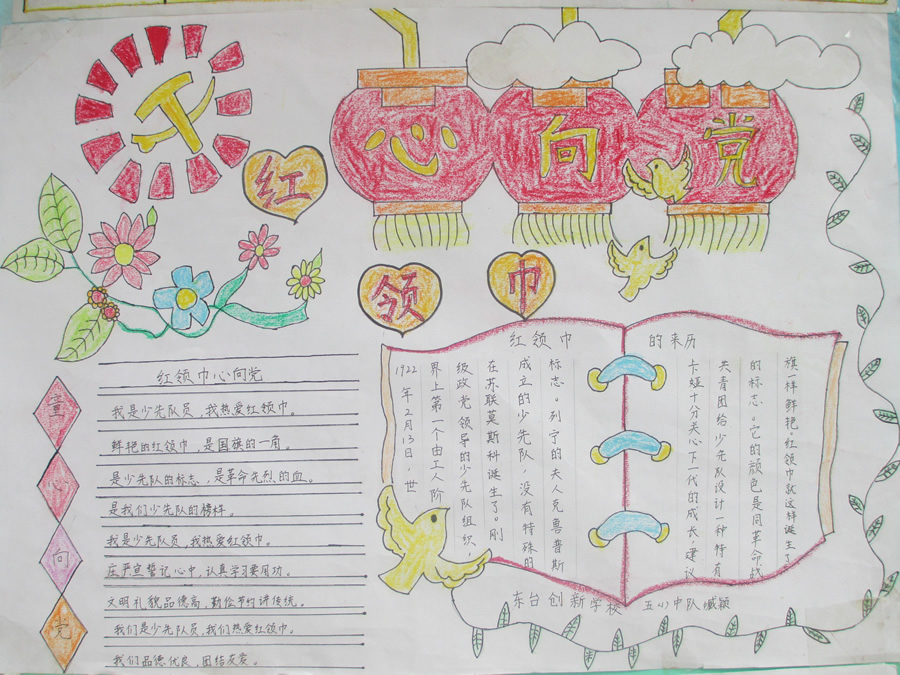 红
领
巾
心
向
党
童
心
向
党
红领巾心向党
我是少先队员,我热爱红领巾。
鲜艳的红领巾,是国旗的一角。
是少先队的标志,是革命先烈的血。
是我们少先队的榜样。
我是少先队员,我热爱红领巾。
庄严宣誓记心中,认真学习要用功。
文明礼貌品德高,勤俭节约讲传统。
我们是少先队员,我们热爱红领巾。
我们品德优良,团结友爱。
红领巾的来历
1922年2月13日,世
界上第一个由工人阶
级政党领导的少先队组织,
在苏联莫斯科诞生了。刚
成立的少先队,没有特殊的
标志。列宁的夫人克鲁普斯
卡娅十分关心下一代的成长,建议
共青团给少先队设计一种特有
的标志。它的颜色是同革命战
旗一样鲜艳。红领巾就这样诞生了。
东台创新学校 五(1)中队